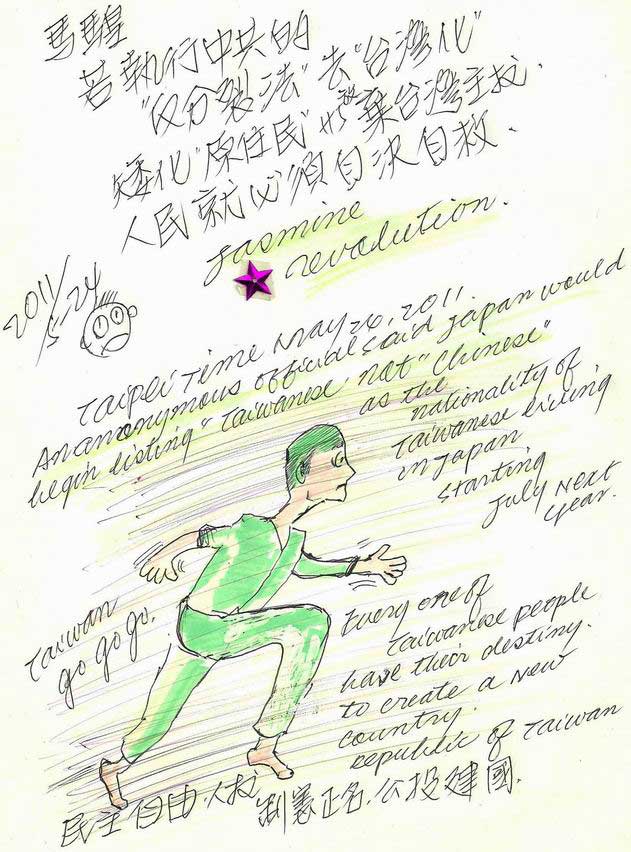 馬騜
若執行中共的
"反分裂法"去"台灣化"
矮化"原住民" 棄台灣主权.
人民就必須自決自救.
Jasmine
revolution.
2011/5-24
Taipei Time May 24, 2011.
An ananonymous official said Japan would
begin listing "Taiwanese not "Chinese"
as the
nationality of
Taiwanese living
in Japan
starting
July next
year.
Taiwan
go go go.
Every one of
Taiwanese people
have their destiny.
to create a new
country.
republic of Taiwan
民主自由.人权 制憲正名.公投建國.